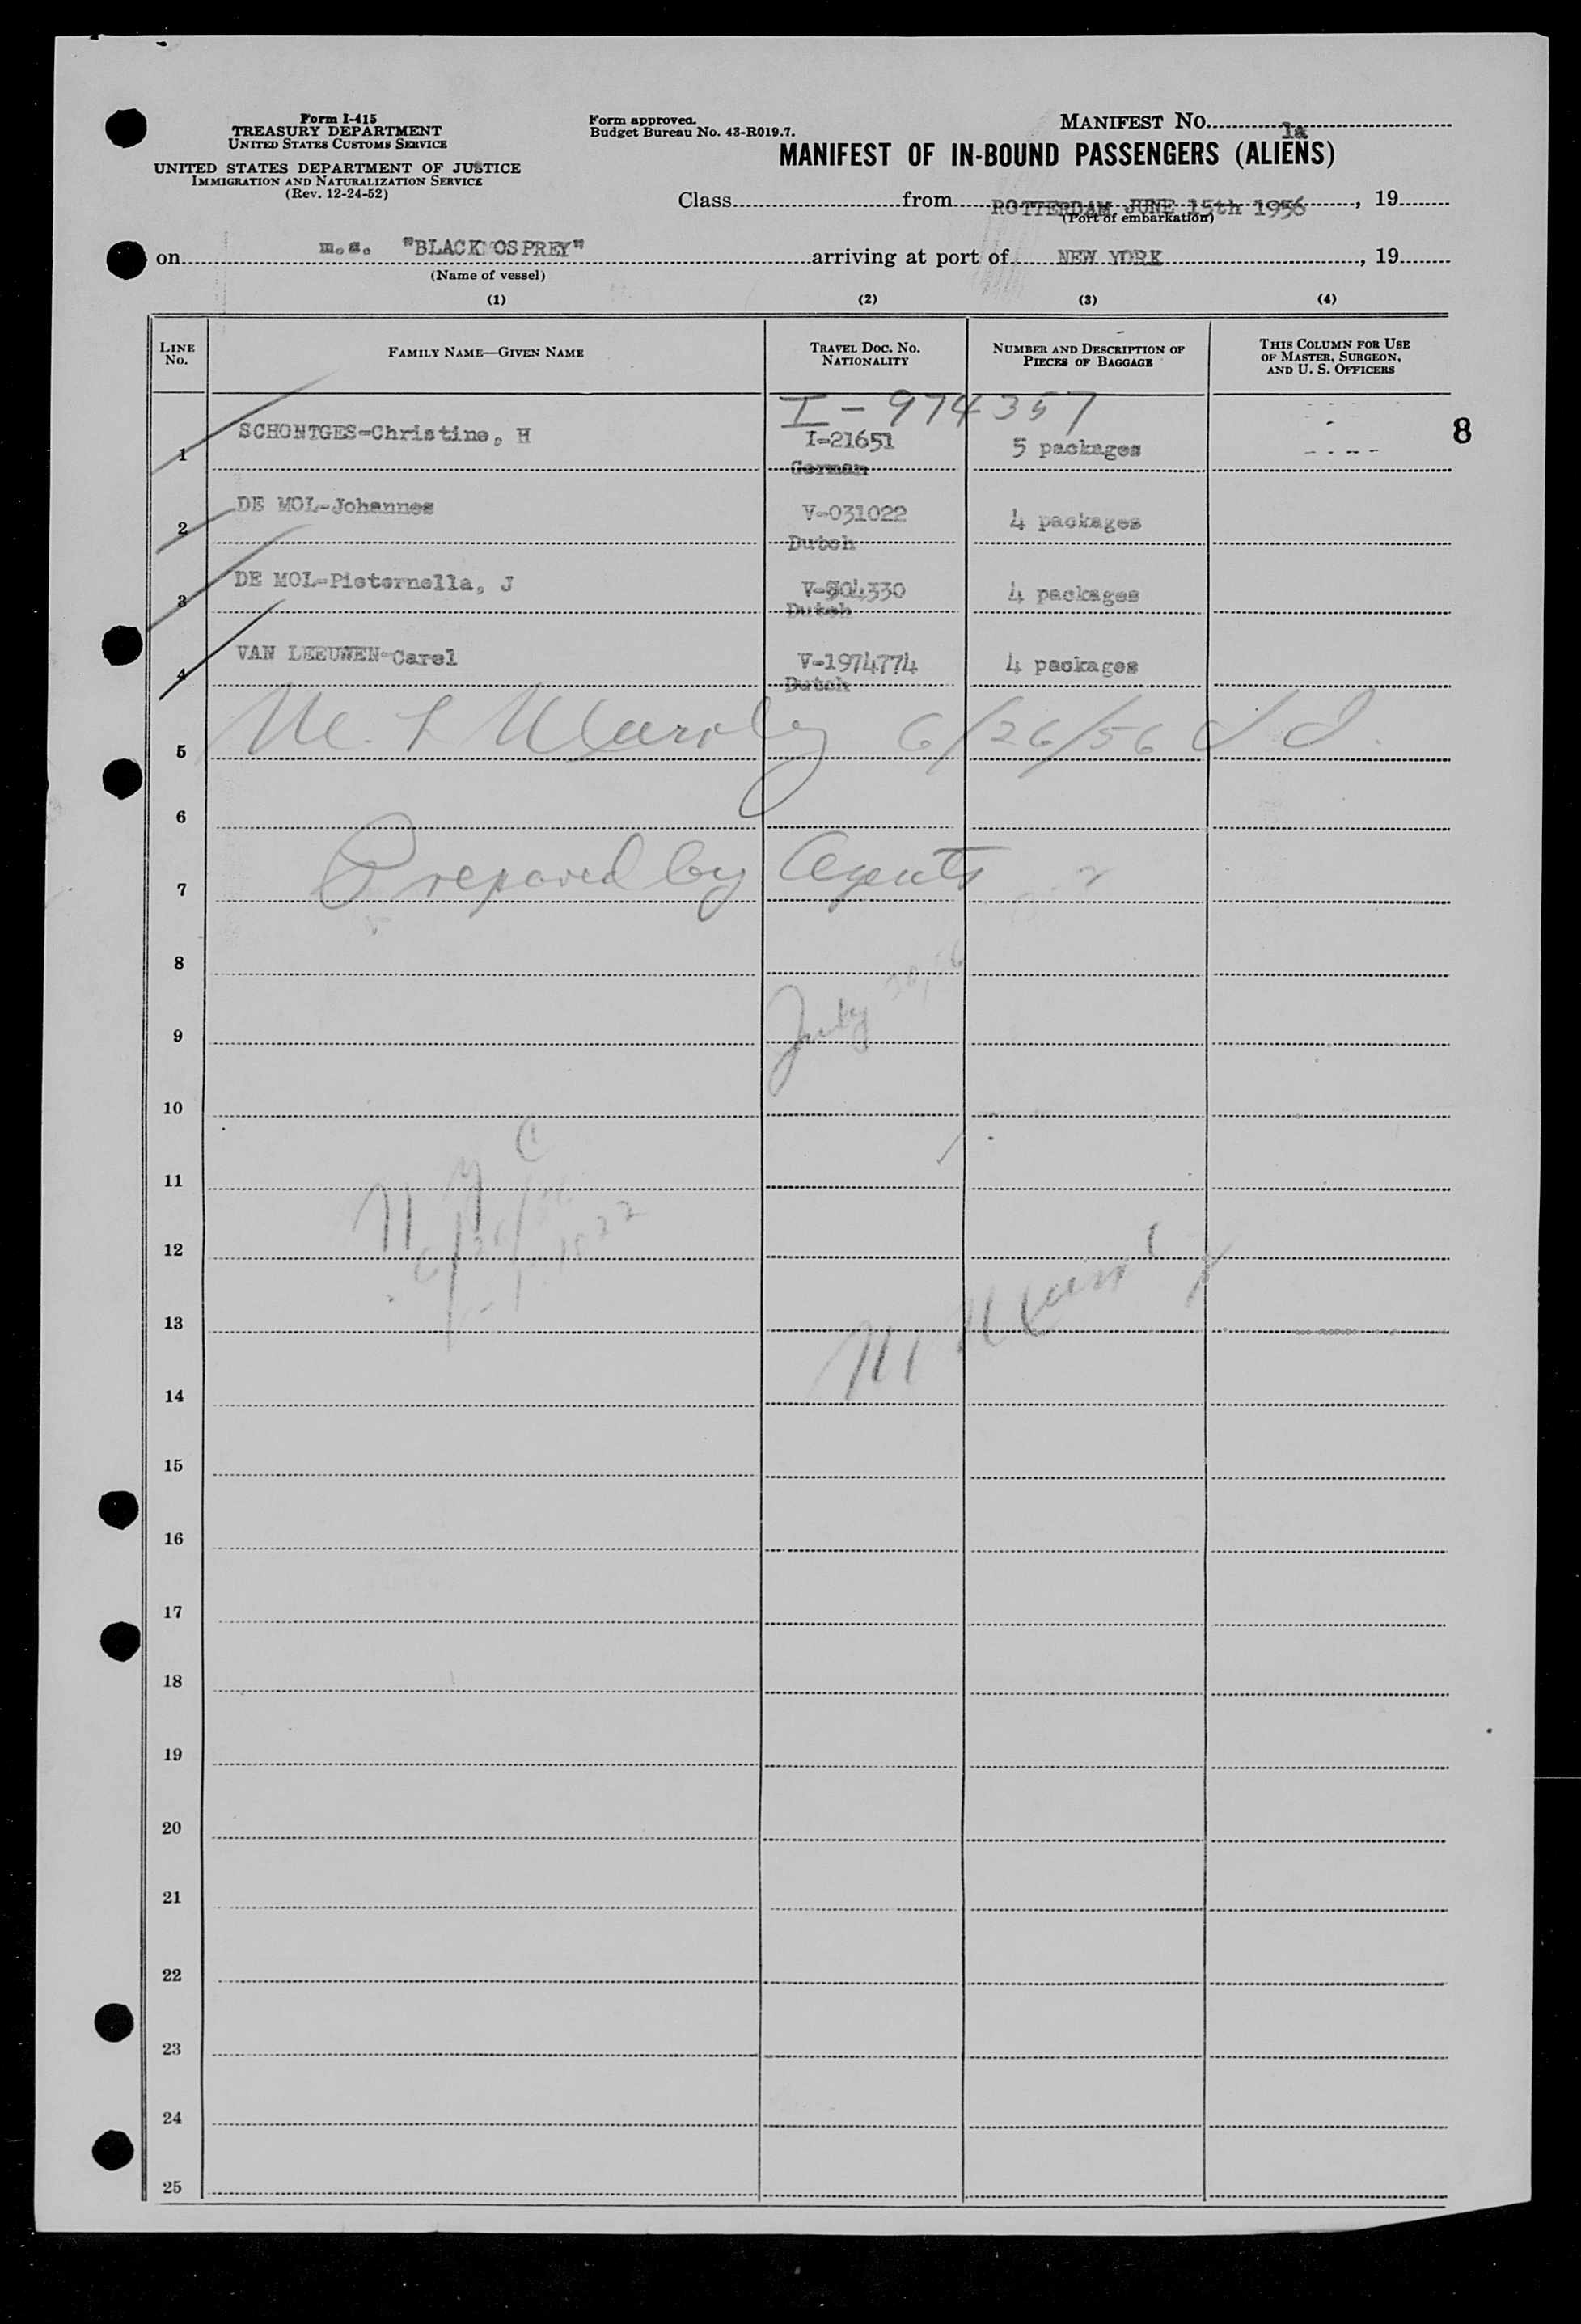 Form I-415
TREASURY DEPARTMENT
UNITED STATES CUSTOMS SERVICE
UNITED STATES DEPARTMENT OF JUSTICE
IMMIGRATION AND NATURALIZATION SERVICE
(Rev. 12-24-52)
Form approved.
Budget Bureau No. 43-R019.7.
MANIFEST NO. 1a
MANIFEST OF IN-BOUND PASSENGERS (ALIENS)
Class from ROTTERDAM JUNE 15th 1956, 19
(Port of embarkation)
on m.s. "BLACK OSPREY" arriving at port of NEW YORK, 19
(Name of vessel)
(1) (2) (3) (4)
LINE NO. FAMILY NAME—GIVEN NAME TRAVEL DOC. NO. NATIONALITY NUMBER AND DESCRIPTION OF PIECES OF BAGGAGE THIS COLUMN FOR USE OF MASTER, SURGEON, AND U. S. OFFICERS
I-974357
1 SCHONTGES-Christine, H I-21651 5 packages 8
German
2 DE MOL-Johannes V-031022 4 packages
Dutch
3 DE MOL-Pieternella, J V-804330 4 packages
Dutch
4 VAN LEEUWEN-Carel V-1974774 4 packages
Dutch
5 6/26/56
6
7 Prepared by Agents
8
9 July
10
11
12
13
14
15
16
17
18
19
20
21
22
23
24
25